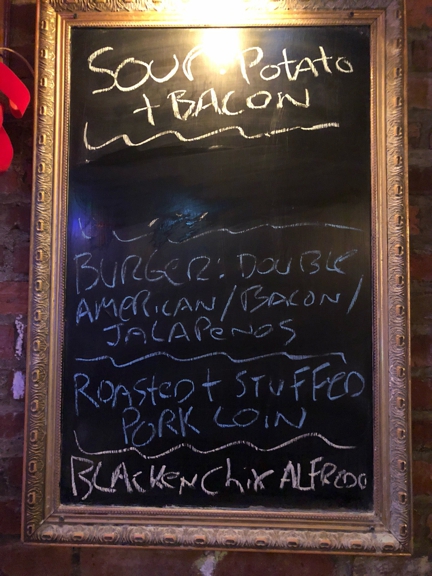 SOUP Potato
+ BACON
BURGER: DOUBLE
AMERICAN/BACON/
JALAPENOS
ROASTED + STUFFED
PORK LOIN
BLACKEN Chix ALFREDO